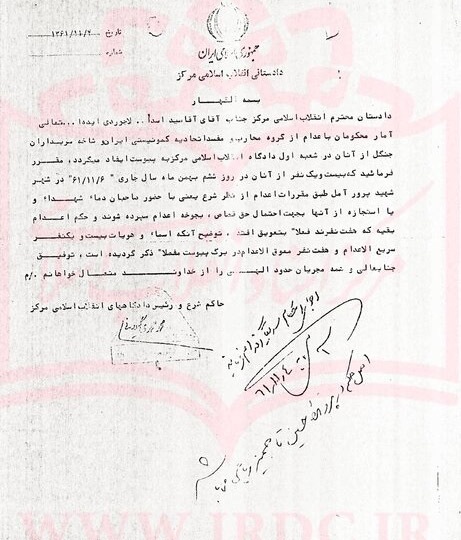 تاریخ ۱۳۶۱/۱۱/۲
شماره
جمهوری اسلامی ایران
دادستانی انقلاب اسلامی مرکز
بسمه القهار
دادستان محترم انقلاب اسلامی مرکز جناب آقای آقاسید اسدا... لاجوردی ایده ا... تعالی
آمار محکومان باعدام از گروه محارب و مفسد اتحادیه کمونیستی ایران و شاخه سربداران
جنگل از آنان در شعبه اول دادگاه انقلاب اسلامی مرکز به پیوست ایفاد میگردد، مقرر
فرمائید که بیست ویک نفر از آنان در روز ششم بهمن ماه سال جاری "۶۱/۱۱/۶" در شهر
شهید پرور آمل طبق مقررات اعدام از نظر شرع یعنی با حضور صاحبان دماء شهداء و
یا استجازه از آنها بجهت احتمال حق قصاص، بجوخه اعدام سپرده شوند و حکم اعدام
بقیه که هفت نفرند فعلا" بتعویق افتد، توضیح آنکه اسماء و هویات بیست و یکنفر
سریع الاعدام و هفت نفر معوق الاعدام در برگ پیوست مفصلا" ذکر گردیده است، توفیق
جنابعالی و همه مجریان حدود الهی را از خداوند متعال خواهانم ۰/م
حاکم شرع و رئیس دادگاههای انقلاب اسلامی مرکز
اجرای حکم
۶۱/۱۱/
این حکم در پرونده حسین
WWW.IRDC.IR